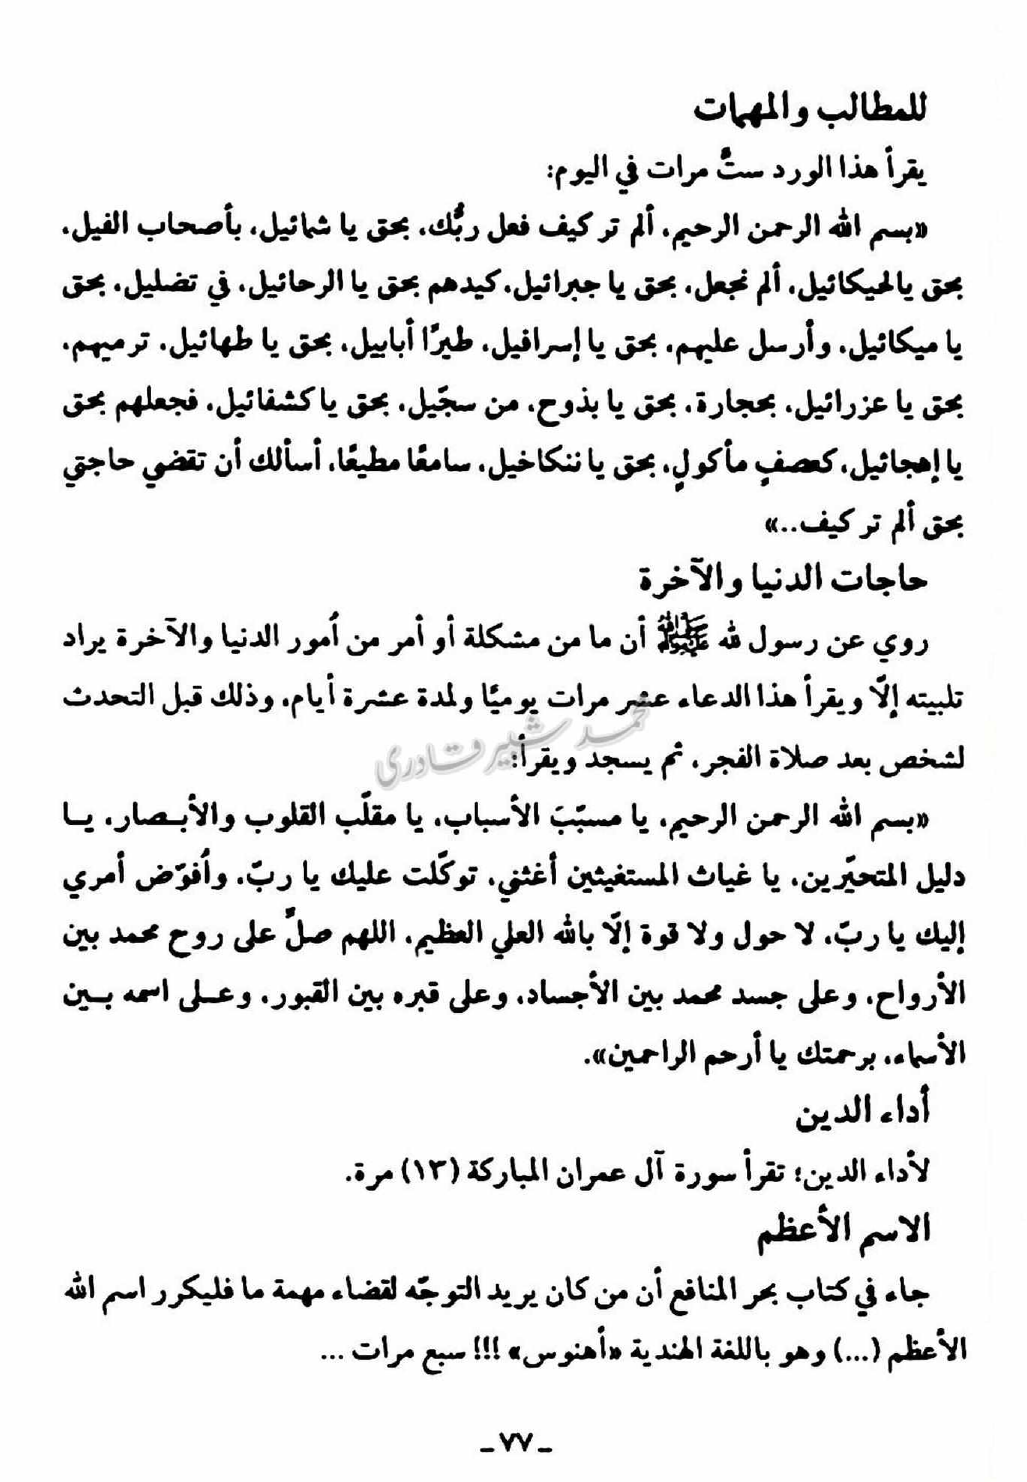 للمطالب والمهمات
يقرأ هذا الورد ستُّ مرات في اليوم:
«بسم الله الرحمن الرحيم، ألم تر كيف فعل ربُّك، بحق يا شمائيل، بأصحاب الفيل،
بحق يالحيكائيل، ألم نجعل، بحق يا جبرائيل، كيدهم بحق يا الرحائيل، في تضليل، بحق
يا ميكائيل، وأرسل عليهم، بحق يا إسرافيل، طيرًا أبابيل، بحق يا طهائيل، ترميهم،
بحق يا عزرائيل، بحجارة، بحق يا بذوح، من سجّيل، بحق يا كشفائيل، فجعلهم بحق
يا إهجائيل، كعصفٍ مأكولٍ، بحق يا ننكاخيل، سامعًا مطيعًا، أسألك أن تقضي حاجتي
بحق ألم تر كيف..»
حاجات الدنيا والآخرة
روي عن رسول لله ﷺ أن ما من مشكلة أو أمر من أمور الدنيا والآخرة يراد
تلبيته إلّا ويقرأ هذا الدعاء عشر مرات يوميًا ولمدة عشرة أيام، وذلك قبل التحدث
لشخص بعد صلاة الفجر، ثم يسجد ويقرأ:
محمد شبير قادري
«بسم الله الرحمن الرحيم، يا مسبّبَ الأسباب، يا مقلّب القلوب والأبصار، يا
دليل المتحيّرين، يا غياث المستغيثين أغثني، توكّلت عليك يا ربّ، وأفوّض أمري
إليك يا ربّ، لا حول ولا قوة إلّا بالله العلي العظيم، اللهم صلِّ على روح محمد بين
الأرواح، وعلى جسد محمد بين الأجساد، وعلى قبره بين القبور، وعلى اسمه بين
الأسماء، برحمتك يا أرحم الراحمين».
أداء الدين
لأداء الدين؛ تقرأ سورة آل عمران المباركة (١٣) مرة.
الاسم الأعظم
جاء في كتاب بحر المنافع أن من كان يريد التوجّه لقضاء مهمة ما فليكرر اسم الله
الأعظم (...) وهو باللغة الهندية «أهنوس» !!! سبع مرات ...
ـ ٧٧ ـ